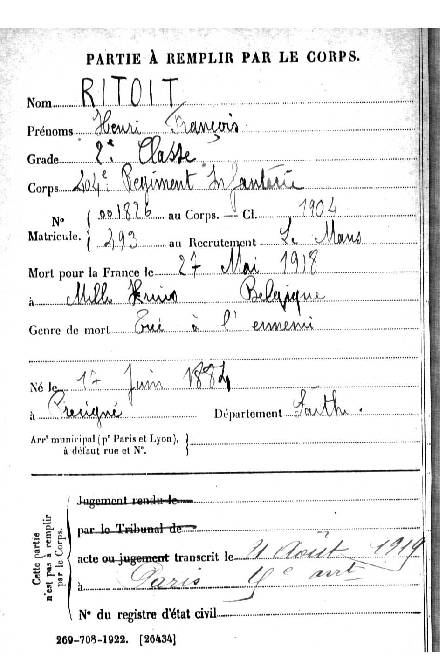 PARTIE À REMPLIR PAR LE CORPS.
Nom RITOIT
Prénoms Henri François
Grade 2e Classe
Corps 404e Regiment Infanterie
N° 001826 au Corps. — Cl. 1904
Matricule. 493 au Recrutement Le Mans
Mort pour la France le 27 Mai 1918
à Mille Belgique
Genre de mort Tué à l'ennemi
Né le 17 Juin 1884
à Précigné Département Sarthe.
Arrt municipal (pr Paris et Lyon),
à défaut rue et N°.
Cette partie
n'est pas à remplir
par le Corps.
Jugement rendu le
par le Tribunal de
acte ou jugement transcrit le Août 1919
à Paris arrt
N° du registre d'état civil
269-708-1922. [26434]